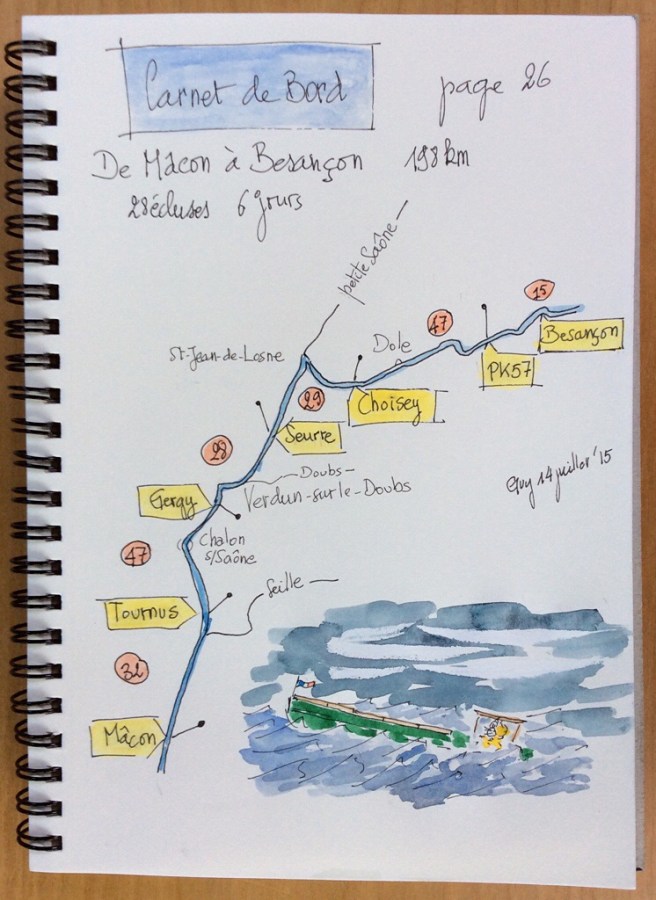 Carnet de Bord
page 26
De Mâcon à Besançon 198km
28 écluses 6 jours
petite Saône
15
47
Besançon
Dole
St-Jean-de-Losne
PK57
29
Choisey
Seurre
28
Guy 14 juillet '15
Doubs
Gergy
Verdun-sur-le-Doubs
Chalon
s/Saône
47
Seille
Tournus
32
Mâcon